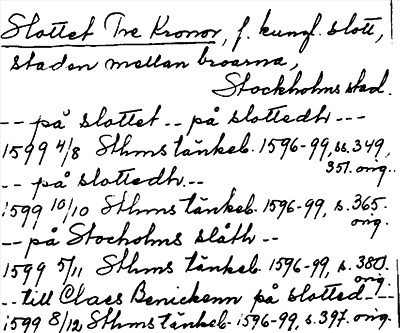 Slottet Tre Kronor, f. kungl. slott,
staden mellan broarna,
Stockholms stad.
-- på slottet -- på slottedh ---
1599 4/8 Sthms tänkeb. 1596-99, ss. 349,
351. orig.
-- på slottedh --
1599 10/10 Sthms tänkeb. 1596-99, s. 365.
orig.
-- på Stocholms slåth --
1599 5/11 Sthms tänkeb. 1596-99, s. 380.
orig.
-- till Claes Benickenn på slotted ---
1599 8/12 Sthms tänkeb. 1596-99, s. 397. orig.